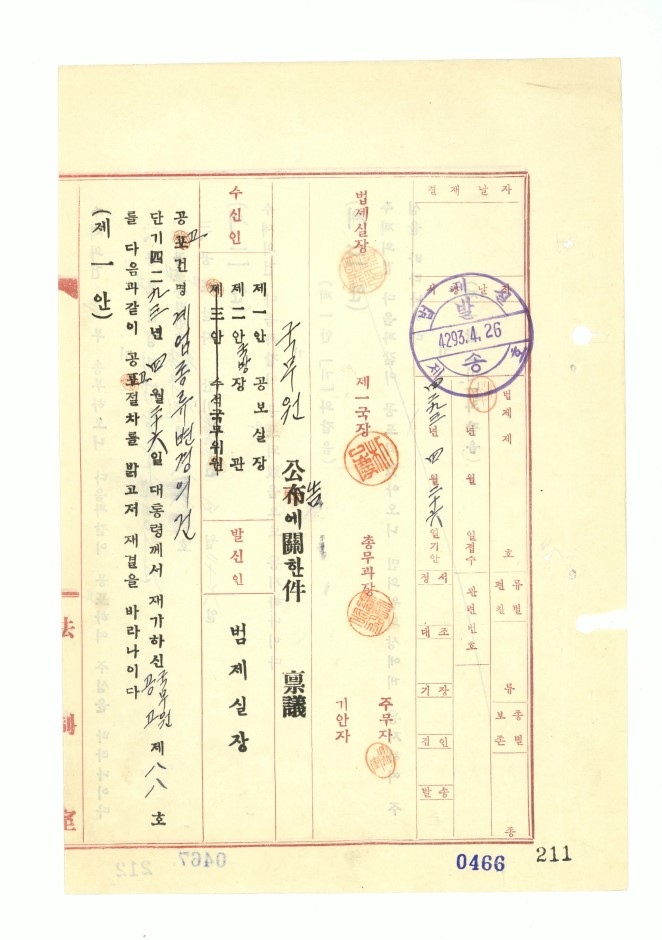 결재날자
법제제 호
단기四二九三년 四월 二十六일기안
년 월 일접수
관련번호
류별
편찬
류
종별
보존
종
법제실
발송
4293.4.26
정서
대조
기장
검인
발송
법제실장
제一국장
총무과장
주무자
기안자
국무원 公布告에關한件 禀議
수신인
제一안 공보실장
제二안 국방장관
제三안 수석국무위원
발신인
법제실장
공포고건명 계엄종류변경의건
단기四二九三년 四월二十六일 대통령께서 재가하신 국무원공고 제八八호
를 다음과같이 공포고절차를 밝고저 재결을 바라나이다
(제一안)
法制室
0466
211
0467
212